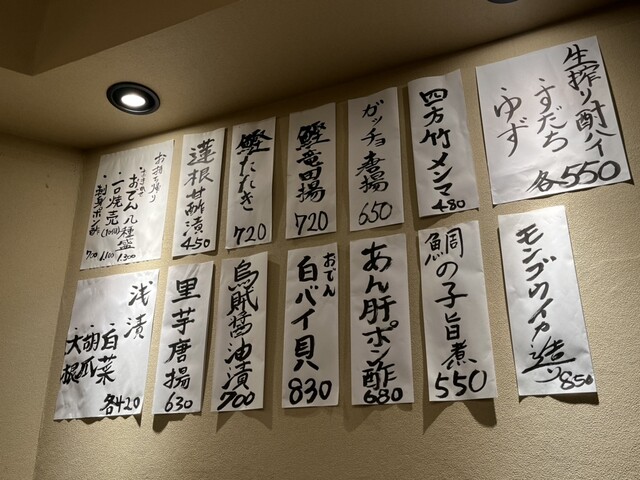 生搾り酎ハイ
・すだち
・ゆず
各550
四方竹メンマ
480
ガッチョ唐揚
650
鰹竜田揚
720
鰹たたき
720
蓮根甘酢漬
450
お持ち帰り
おでん八種盛
1,300
・一口焼売(10個)
1,100
・刺身ポン酢
700
モンゴウイカ造り
850
鯛の子旨煮
550
あん肝ポン酢
680
おでん
白バイ貝
830
烏賊醤油漬
700
里芋唐揚
630
浅漬
・白菜
・胡瓜
・大根
各420